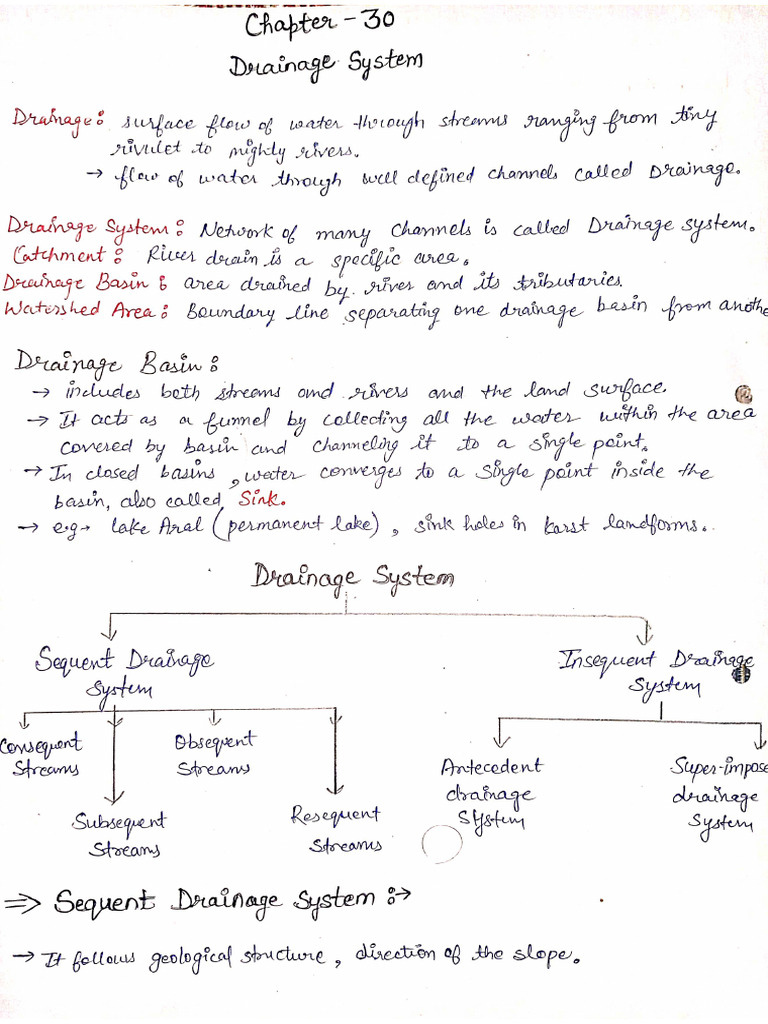 Chapter - 30
Drainage System
Drainage: surface flow of water through streams ranging from tiny
rivulet to mighty rivers.
→ flow of water through well defined channels called Drainage.
Drainage System: Network of many channels is called Drainage system.
Catchment: River drain is a specific area.
Drainage Basin: area drained by river and its tributaries.
Watershed Area: Boundary line separating one drainage basin from anothe
Drainage Basin:
→ includes both streams and rivers and the land surface.
→ It acts as a funnel by collecting all the water within the area
covered by basin and channeling it to a single point.
→ In closed basins, water converges to a single point inside the
basin, also called Sink.
→ e.g → Lake Aral (permanent lake), sink holes in karst landforms.
Drainage System
Sequent Drainage System
Insequent Drainage System
Consequent Streams
Subsequent Streams
Obsequent Streams
Resequent Streams
Antecedent drainage System
Super-impose drainage System
⇒ Sequent Drainage System :→
→ It follows geological structure, direction of the slope.